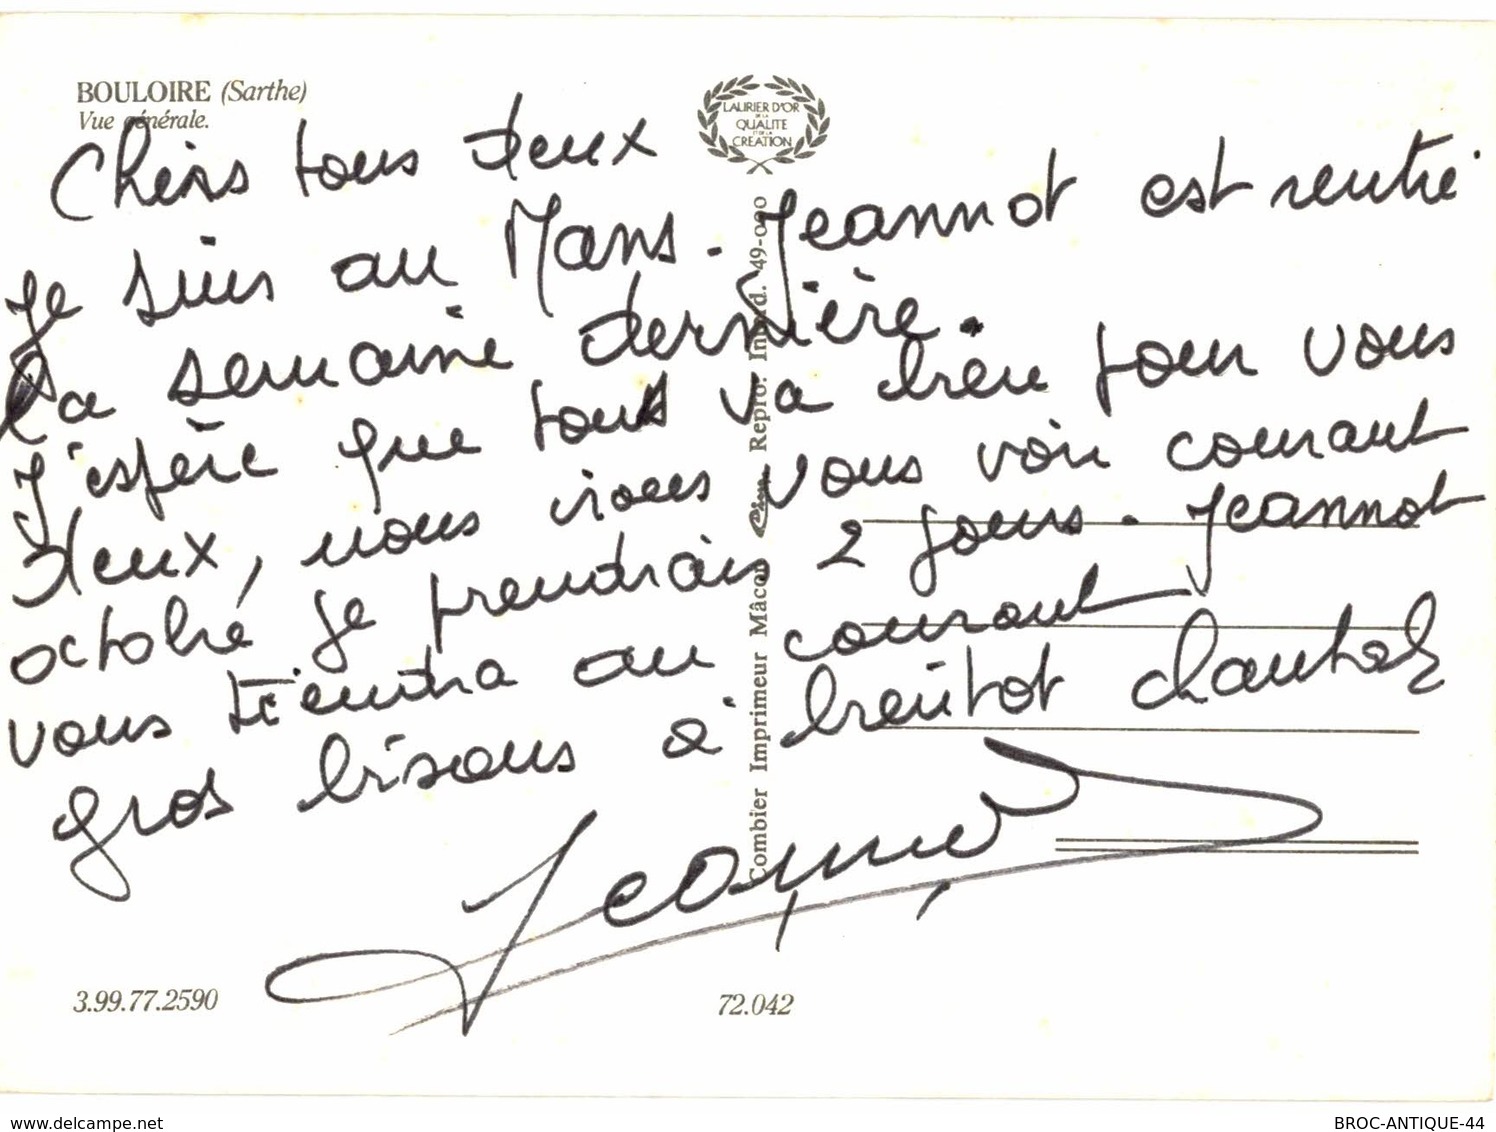 BOULOIRE (Sarthe)
Vue générale.
LAURIER D'OR
DE LA
QUALITE
ET DE LA
CREATION
Chers tous deux
Je suis au Mans. Jeannot est rentré
la semaine dernière.
J'espère que tous va bien pour vous
deux, nous irons vous voir courant
octobre je prendrais 2 jours. Jeannot
vous tiendra au courant
gros bisous à bientot
Combier Imprimeur Mâcon Repro. Interd. 49-000
3.99.77.2590
72.042
www.delcampe.net
BROC-ANTIQUE-44